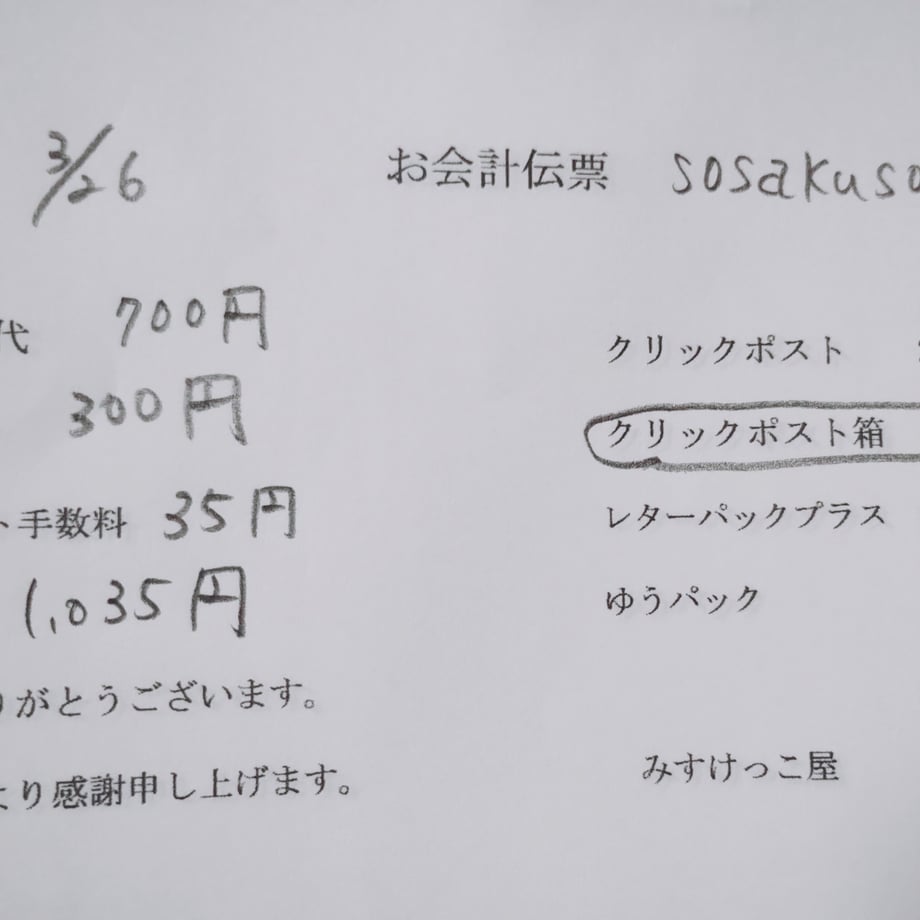 3/26 お会計伝票 sosakuso
代 700円
クリックポスト
300円
クリックポスト箱
ト手数料 35円
レターパックプラス
1,035円
ゆうパック
りがとうございます。
みすけっこ屋
より感謝申し上げます。